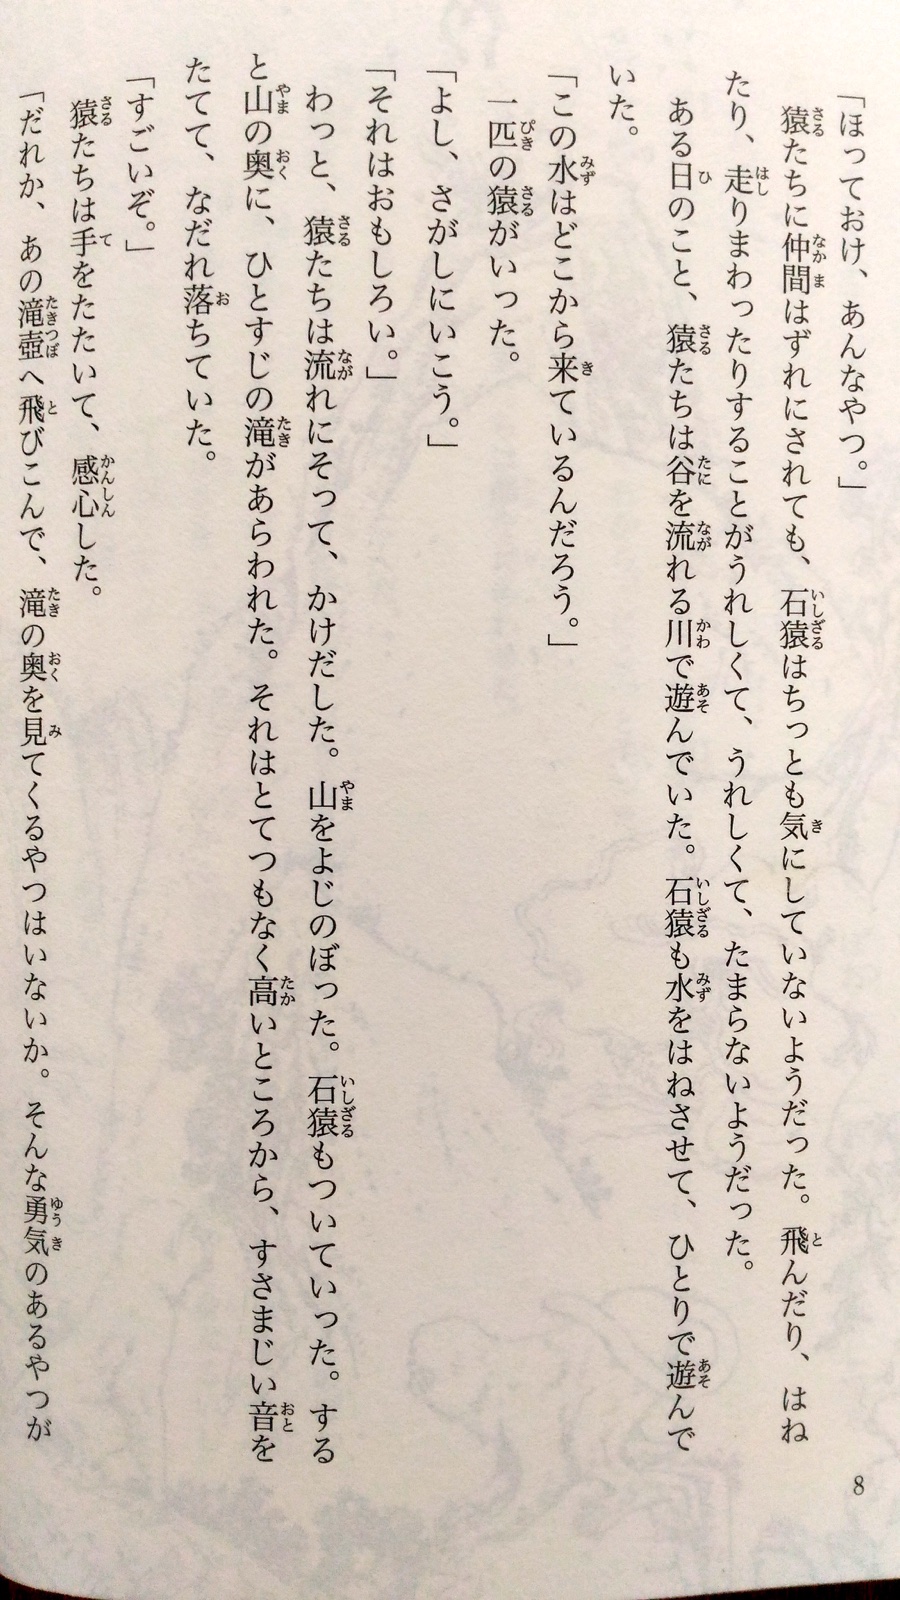 「ほっておけ、あんなやつ。」
猿たちに仲間はずれにされても、石猿はちっとも気にしていないようだった。飛んだり、はね
たり、走りまわったりすることがうれしくて、うれしくて、たまらないようだった。
ある日のこと、猿たちは谷を流れる川で遊んでいた。石猿も水をはねさせて、ひとりで遊んで
いた。
「この水はどこから来ているんだろう。」
一匹の猿がいった。
「よし、さがしにいこう。」
「それはおもしろい。」
わっと、猿たちは流れにそって、かけだした。山をよじのぼった。石猿もついていった。する
と山の奥に、ひとすじの滝があらわれた。それはとてつもなく高いところから、すさまじい音を
たてて、なだれ落ちていた。
「すごいぞ。」
猿たちは手をたたいて、感心した。
「だれか、あの滝壺へ飛びこんで、滝の奥を見てくるやつはいないか。そんな勇気のあるやつが
8